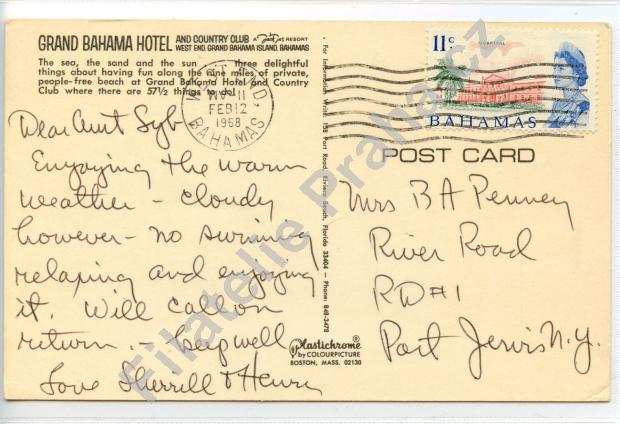 GRAND BAHAMA HOTEL AND COUNTRY CLUB A Jack Tar RESORT
WEST END, GRAND BAHAMA ISLAND, BAHAMAS
The sea, the sand and the sun ... three delightful
things about having fun along the nine miles of private,
people-free beach at Grand Bahama Hotel and Country
Club where there are 57½ things to do!
WEST END,
FEB 12
1968
BAHAMAS
11c
HOSPITAL
BAHAMAS
Dear Aunt Syb
Enjoying the warm
weather - cloudy
however - no swiming
relaxing and enjoying
it. Will call on
return. - Keep well
Love Sherrill & Henry
For Information Write: 158 Port Road, Riviera Beach, Florida 33404 - Phone: 848-3478
Plastichrome®
by COLOURPICTURE
BOSTON, MASS. 02130
POST CARD
Mrs B A Penney
River Road
RD#1
Port Jervis N.Y.
Filatelie Praha.cz